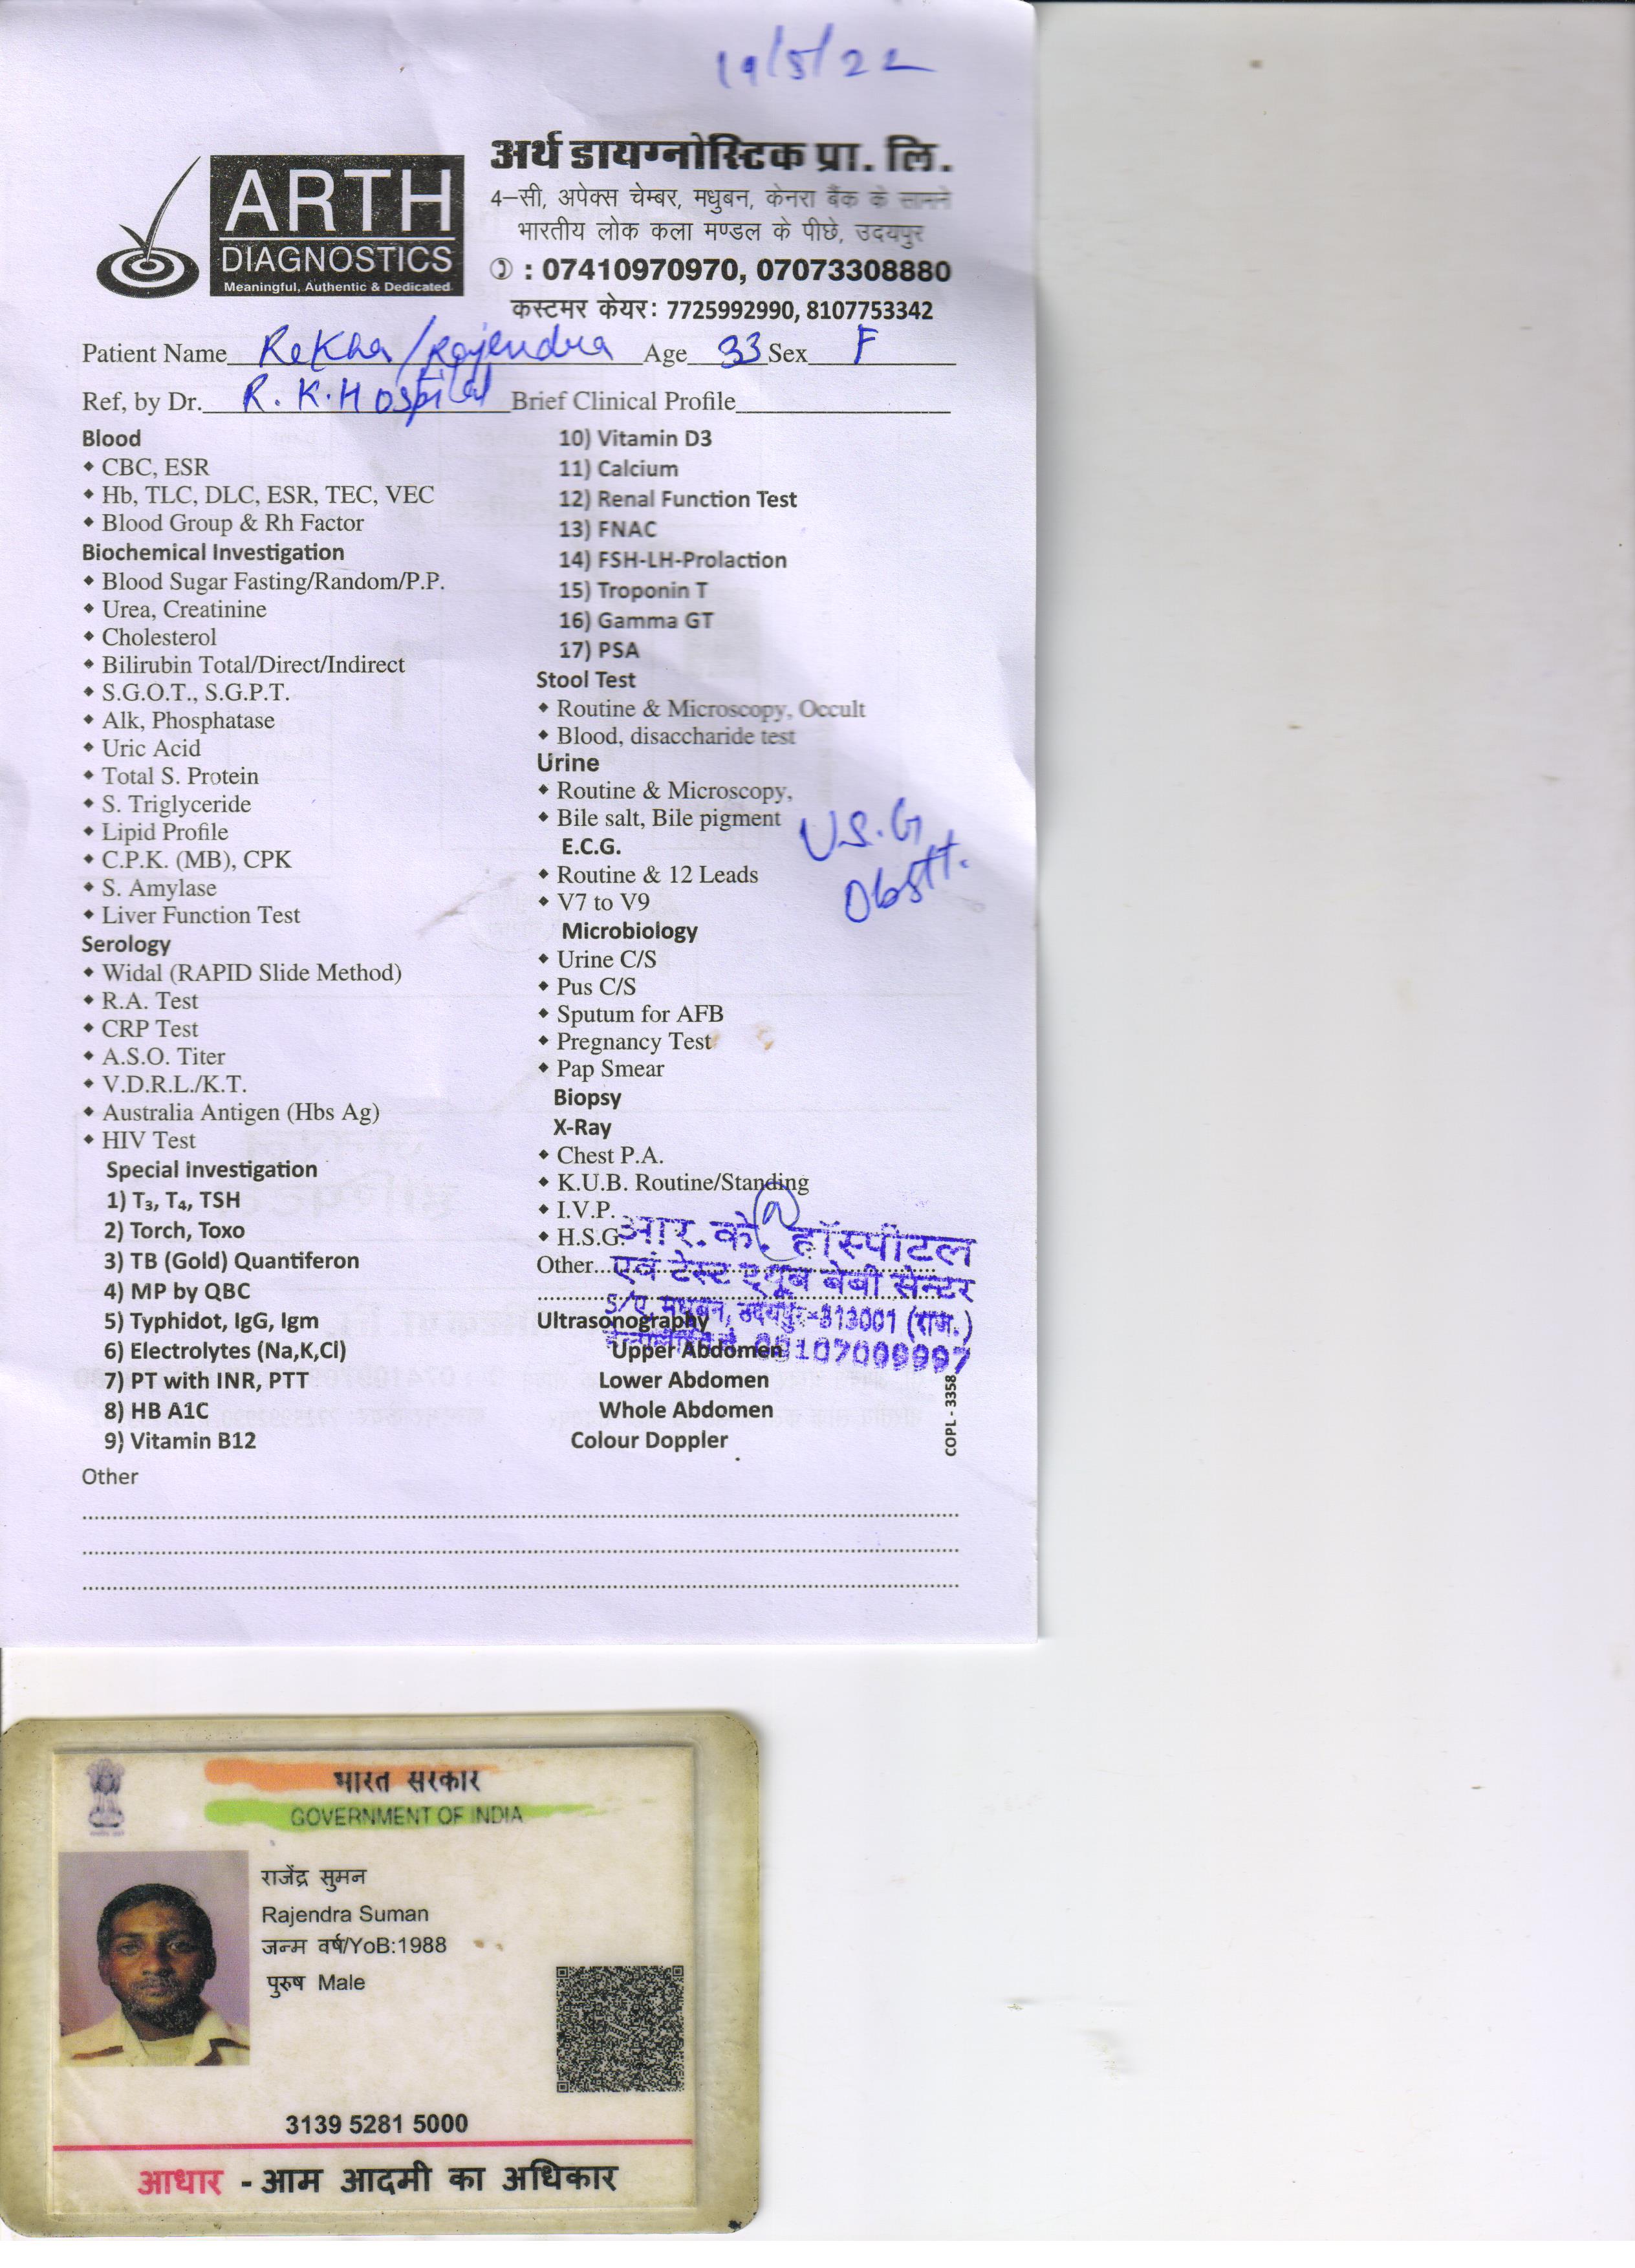 19/5/22
ARTH
DIAGNOSTICS
Meaningful, Authentic & Dedicated
अर्थ डायग्नोस्टिक प्रा. लि.
4–सी, अपेक्स चेम्बर, मधुबन, केनरा बैंक के सामने
भारतीय लोक कला मण्डल के पीछे, उदयपुर
: 07410970970, 07073308880
कस्टमर केयर: 7725992990, 8107753342
Patient Name Rekha/Rajendra Age 33 Sex F
Ref, by Dr. R.K.Hospital Brief Clinical Profile
Blood
CBC, ESR
Hb, TLC, DLC, ESR, TEC, VEC
Blood Group & Rh Factor
Biochemical Investigation
Blood Sugar Fasting/Random/P.P.
Urea, Creatinine
Cholesterol
Bilirubin Total/Direct/Indirect
S.G.O.T., S.G.P.T.
Alk, Phosphatase
Uric Acid
Total S. Protein
S. Triglyceride
Lipid Profile
C.P.K. (MB), CPK
S. Amylase
Liver Function Test
Serology
Widal (RAPID Slide Method)
R.A. Test
CRP Test
A.S.O. Titer
V.D.R.L./K.T.
Australia Antigen (Hbs Ag)
HIV Test
Special investigation
1) T₃, T₄, TSH
2) Torch, Toxo
3) TB (Gold) Quantiferon
4) MP by QBC
5) Typhidot, IgG, Igm
6) Electrolytes (Na,K,Cl)
7) PT with INR, PTT
8) HB A1C
9) Vitamin B12
10) Vitamin D3
11) Calcium
12) Renal Function Test
13) FNAC
14) FSH-LH-Prolaction
15) Troponin T
16) Gamma GT
17) PSA
Stool Test
Routine & Microscopy, Occult
Blood, disaccharide test
Urine
Routine & Microscopy,
Bile salt, Bile pigment
U.S.G
Obstt.
E.C.G.
Routine & 12 Leads
V7 to V9
Microbiology
Urine C/S
Pus C/S
Sputum for AFB
Pregnancy Test
Pap Smear
Biopsy
X-Ray
Chest P.A.
K.U.B. Routine/Standing
I.V.P.
H.S.G.
आर.के. हॉस्पीटल
Other
एवं टेस्ट ट्यूब बेबी सेन्टर
5/ए, मधुबन, उदयपुर-313001 (राज.)
Ultrasonography
Upper Abdomen
Lower Abdomen
Whole Abdomen
Colour Doppler
COPL - 3358
Other
भारत सरकार
GOVERNMENT OF INDIA
राजेंद्र सुमन
Rajendra Suman
जन्म वर्ष/YoB:1988
पुरुष Male
3139 5281 5000
आधार - आम आदमी का अधिकार